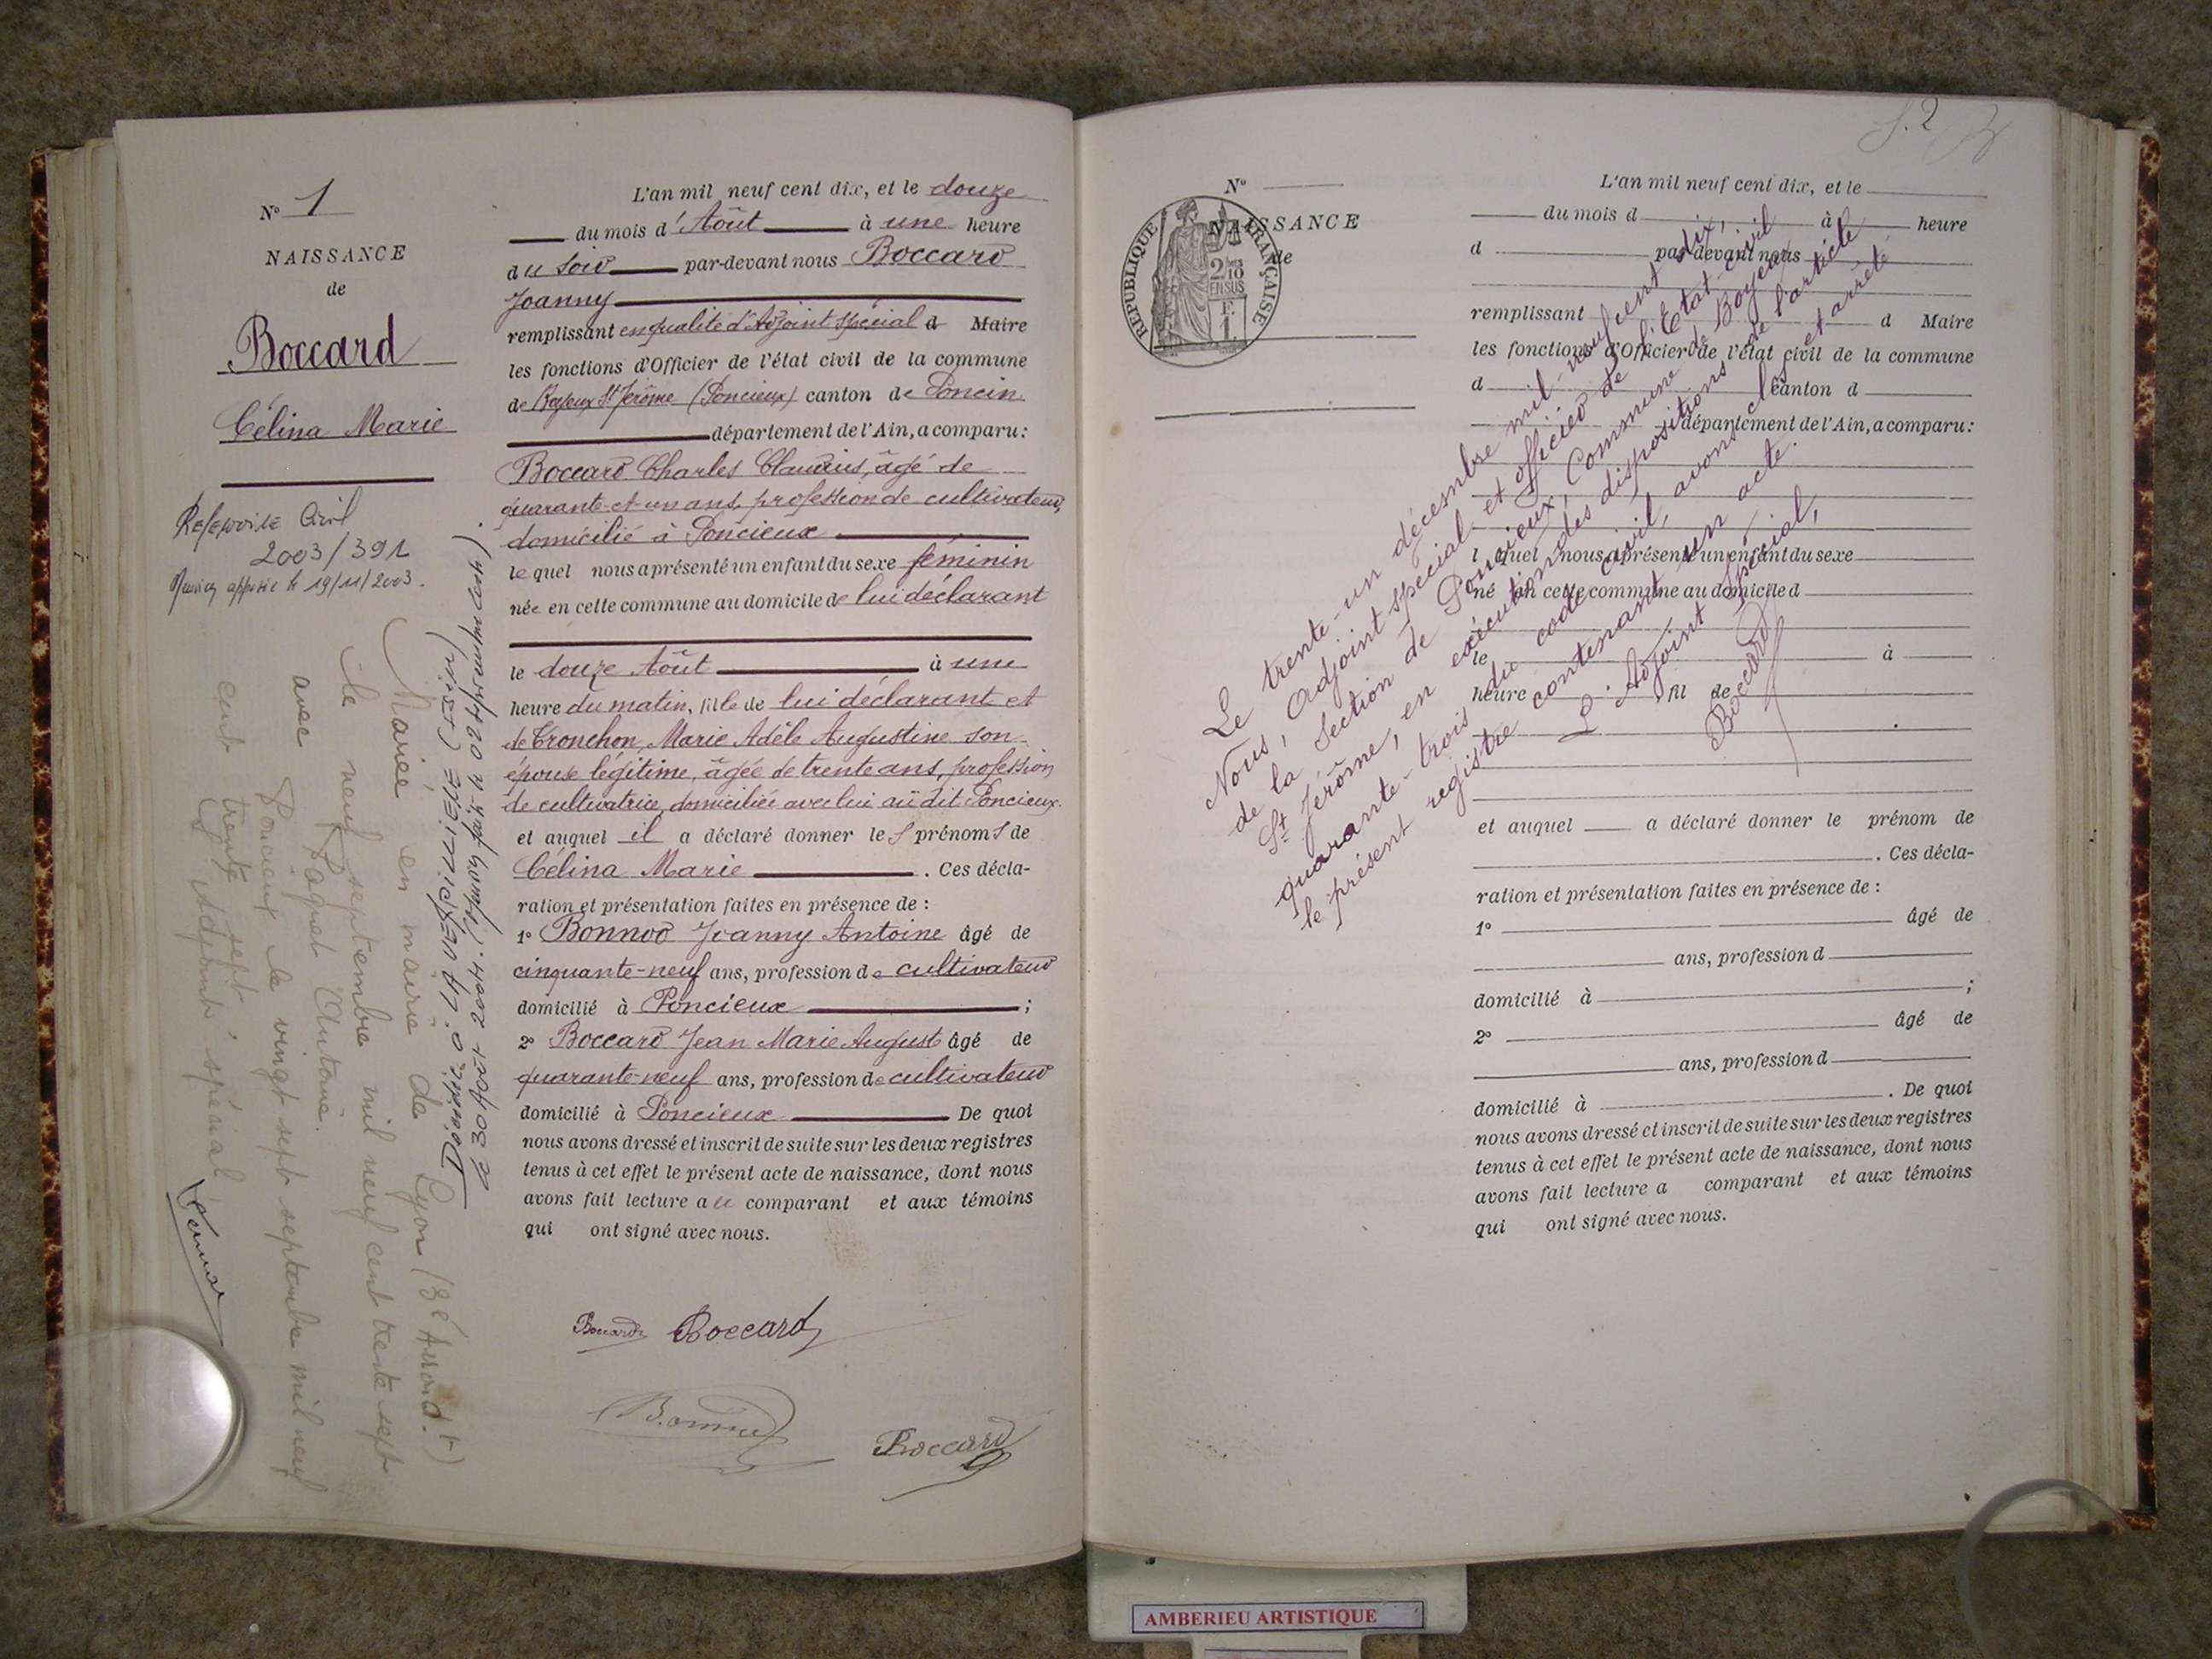 N° 1
NAISSANCE
de
Boccard
Célina Marie
Répertoire Civil
2003/391
apposée le 19/11/2003.
Mariée en mairie de Lyon (3e Arrond.t)
le neuf septembre mil neuf cent trente sept
avec Paquet Antoine.
Poncieux le vingt sept septembre mil neuf
cent trente sept
L'adjoint spécial
Décédée à LA VERPILLIERE (Isère)
le 30 Août 2004.
L'an mil neuf cent dix, et le douze
du mois d'Août à une heure
du soir par-devant nous Boccard
Joanny
remplissant en qualité d'Adjoint spécial d Maire
les fonctions d'Officier de l'état civil de la commune
de Boyeux St Jérôme (Poncieux) canton de Poncin
département de l'Ain, a comparu:
Boccard Charles Claudius, âgé de
quarante-et-un ans, profession de cultivateur,
domicilié à Poncieux
lequel nous a présenté un enfant du sexe féminin
née en cette commune au domicile de lui déclarant
le douze Août à une
heure du matin, fille de lui déclarant et
de Tronchon, Marie Adèle Augustine son
épouse légitime, âgée de trente ans, profession
de cultivatrice, domiciliée avec lui au dit Poncieux.
et auquel il a déclaré donner les prénoms de
Célina Marie . Ces décla-
ration et présentation faites en présence de :
1° Bonnod Joanny Antoine âgé de
cinquante-neuf ans, profession de cultivateur
domicilié à Poncieux ;
2° Boccard Jean Marie August âgé de
quarante-neuf ans, profession de cultivateur
domicilié à Poncieux De quoi
nous avons dressé et inscrit de suite sur les deux registres
tenus à cet effet le présent acte de naissance, dont nous
avons fait lecture au comparant et aux témoins
qui ont signé avec nous.
Boccard Boccard
Bonnod
Boccard
f. 2
N°
NAISSANCE
de
RÉPUBLIQUE FRANÇAISE
2/10 EN SUS
F.
1.
L'an mil neuf cent dix, et le
du mois d à heure
d par-devant nous
remplissant d Maire
les fonctions d'Officier de l'état civil de la commune
d canton d
département de l'Ain, a comparu:
l quel nous a présenté un enfant du sexe
né en cette commune au domicile d
le à
heure , fil de
et auquel a déclaré donner le prénom de
. Ces décla-
ration et présentation faites en présence de :
1° âgé de
ans, profession d
domicilié à ;
2° âgé de
ans, profession d
domicilié à . De quoi
nous avons dressé et inscrit de suite sur les deux registres
tenus à cet effet le présent acte de naissance, dont nous
avons fait lecture a comparant et aux témoins
qui ont signé avec nous.
Le trente-un décembre mil-neuf-cent dix,
Nous, Adjoint spécial et officier de l'Etat-civil
de la Section de Poncieux, Commune de Boyeux
St Jérôme, en exécution des dispositions de l'article
quarante-trois du code civil, avons clos et arrêté
le présent registre contenant un acte.
L'Adjoint spécial,
Boccard
AMBERIEU ARTISTIQUE